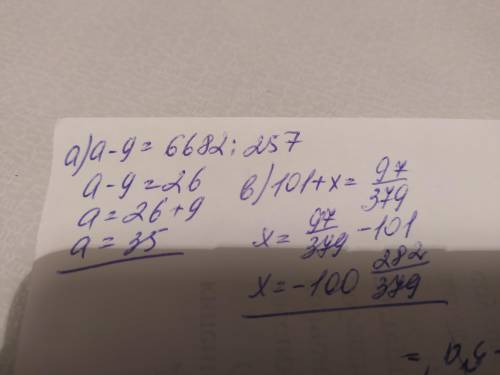 а) а-9 = 6682 : 257
а-9 = 26
а = 26+9
а = 35
в) 101+x = 97/379
x = 97/379 - 101
x = -100 282/379